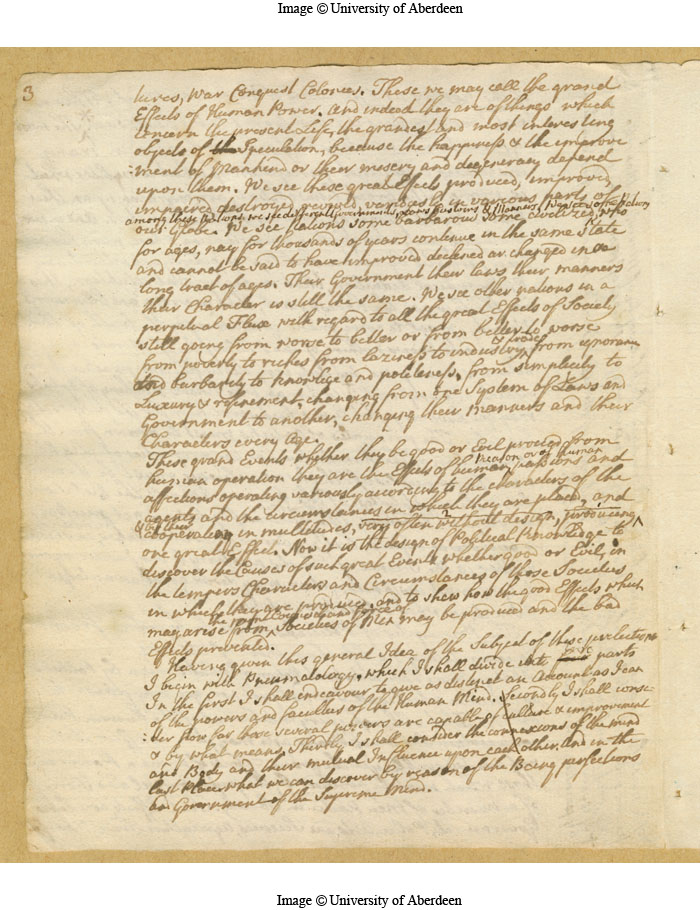 Image © University of Aberdeen
3
tures, War Conquest Colonies. These we may call the grand
Effects of Human Power. And indeed they are of things which
concern the present Life, the grandest and most interesting
objects of the Speculation, because the happiness & the improve
:ment of Mankind or their misery and degeneracy depend
upon them. We see these great Effects produced, improved,
impaired destroyed, revived, variously in various parts of
among these Nations we see different Governments, Laws Customs & Manners
our Globe. We see Nations some barbarous some civilized, who
for ages, nay for thousands of years continue in the same State
and cannot be said to have improved declined or changed in a
long tract of ages. Their Government their laws their manners
their Character is still the same. We see other nations in a
perpetual Flux with regard to all the great Effects of Society
still going from worse to better or from better to worse
& trade
from poverty to riches from laziness to industry, from ignorance
and barbarity to knowledge and politeness, from simplicity to
Luxury & refinement, changing from one System of Laws and
Government to another, changing their manners and their
Characters every age.
These grand Events whether they be good or Evil proceed from
reason or of human
human operation they are the Effects of human passions and
affections operating variously according to the characters of the
agents and the circumstances in which they are placed, and
of their
cooperating in multitudes, very often without design, producing
one great Effect. Now it is the design of Political Knowledge to
discover the Causes of such great Events whether good or Evil, in
the tempers Characters and Circumstances of those Societies
in which they are produced, and to shew how the good Effects which
may arise from Societies of Men may be produced and the bad
Effects prevented.
Having given this general Idea of the Subject of these prelections
I begin with Pneumatology, which I shall divide into parts
In the first I shall endeavour to give as distinct an Account as I can
of the powers and faculties of the Human Mind. Secondly I shall consi-
:der how far these several powers are capable of culture & improvement
& by what means. Thirdly I shall consider the connexions of the mind
and Body and their mutual Influence upon each other, and in the
last Place what we can discover by reason of the Being perfections
and Government of the Supreme Mind.
Image © University of Aberdeen